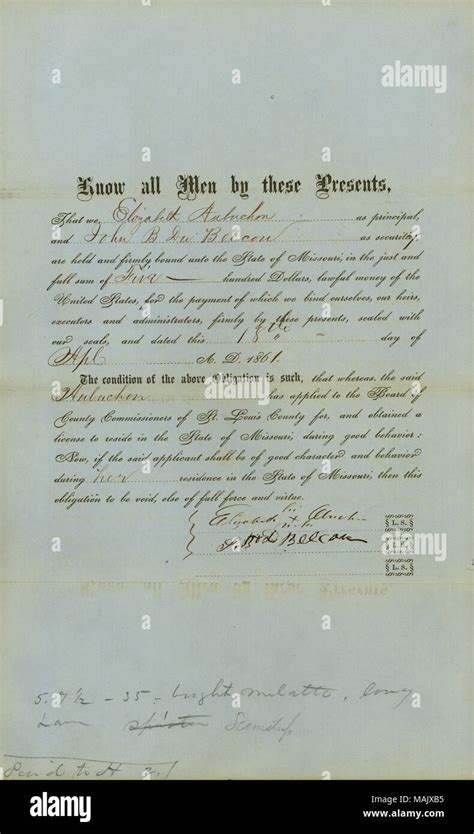 Know all Men by these Presents,
That we Elizabeth Aubuchon as principal,
and John B De Belcour as security,
are held and firmly bound unto the State of Missouri, in the just and
full sum of Five hundred Dollars, lawful money of the
United States, for the payment of which we bind ourselves, our heirs,
executors and administrators, firmly by these presents, sealed with
our seals, and dated this 18th day of
Apl A. D. 1861.
The condition of the above Obligation is such, that whereas, the said
Aubuchon has applied to the Board of
County Commissioners of St. Louis County for, and obtained a
license to reside in the State of Missouri, during good behavior:
Now, if the said applicant shall be of good character and behavior
during her residence in the State of Missouri, then this
obligation to be void, else of full force and virtue.
Elizabeth X L. S.
J B D Belcour L. S.
L. S.
5. 7 1/2 - 35 - bright mulatto, long
Seamstress
alamy
Image ID: MAJXB5
www.alamy.com